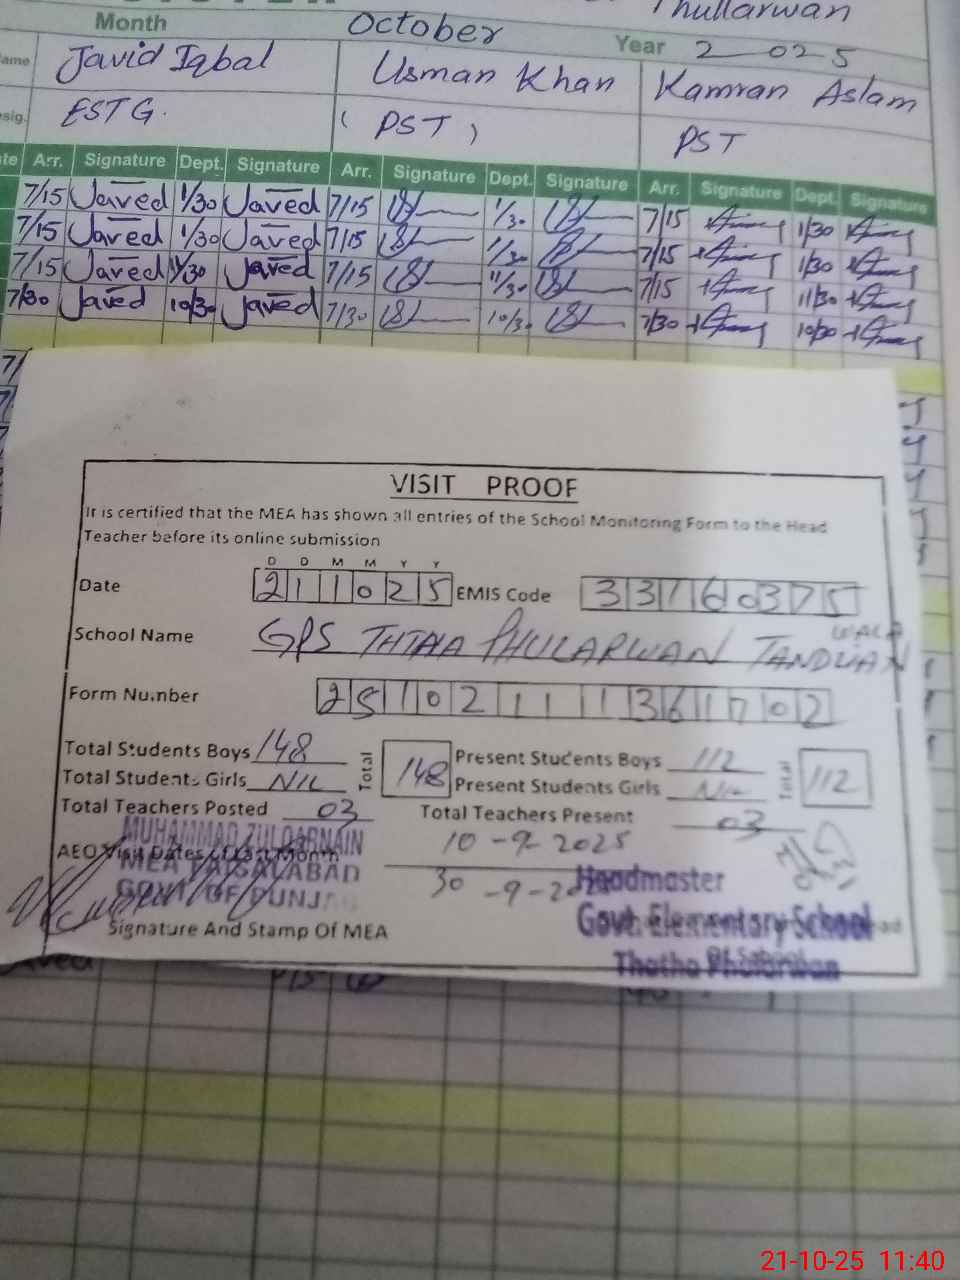 Thullarwan
Month October Year 2025
ame Javid Iqbal Usman Khan Kamran Aslam
esig. ESTG. (PST) PST
te Arr. Signature Dept. Signature Arr. Signature Dept. Signature Arr. Signature Dept. Signature
7/15 Javed 1/30 Javed 7/15 1/30 7/15 1/30
7/15 Javed 1/30 Javed 7/15 1/30 7/15 1/30
7/15 Javed 11/30 Javed 7/15 11/30 7/15 11/30
7/30 Javed 10/30 Javed 7/30 10/30 7/30 10/30
VISIT PROOF
It is certified that the MEA has shown all entries of the School Monitoring Form to the Head
Teacher before its online submission
D D M M Y Y
Date 211025 EMIS Code 33160375
School Name GPS THTHA PHULARWAN TANDLIAN
WALA
Form Number 25102111361702
Total Students Boys 148 Total 148 Present Students Boys 112 Total 112
Total Students Girls NIL Present Students Girls NIL
Total Teachers Posted 03 Total Teachers Present 03
MUHAMMAD ZULQARNAIN
AEO Visit Dates of Last Month 10-9-2025
MEA FAISALABAD
30-9-2025
GOVT. OF PUNJAB
Signature And Stamp Of MEA
Headmaster
Govt. Elementary School
Of School
Thatha Phularwan
21-10-25 11:40